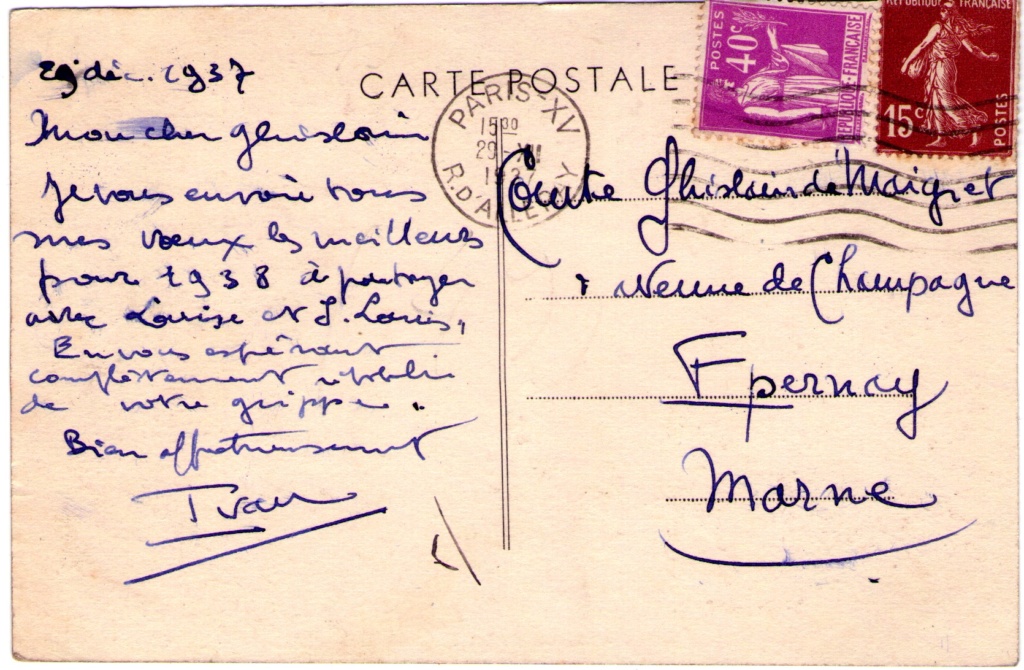 29 déc. 1937
CARTE POSTALE
Mon cher Ghislain
Je vous envoie tous
mes vœux les meilleurs
pour 1938 à partager
avec Louise et J. Louis,
En vous espérant
complètement rétabli
de votre grippe.
Bien affectueusement
Ivan
PARIS-XV
15H30
29-XII
1937
R. D'ALLERAY
POSTES
40c
REPUBLIQUE FRANÇAISE
REPUBLIQUE FRANÇAISE
15c
POSTES
Comte Ghislain de Maigret
Avenue de Champagne
Epernay
Marne